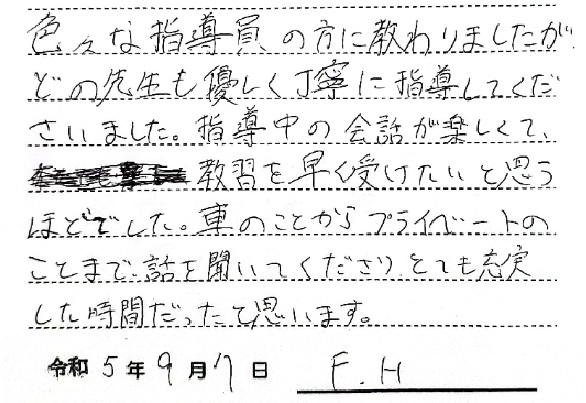 色々な指導員の方に教わりましたが
どの先生も優しく丁寧に指導してくだ
さいました。指導中の会話が楽しくて、
教習を早く受けたいと思う
ほどでした。車のことからプライベートの
ことまで話を聞いてくださり、とても充実
した時間だったと思います。
令和5年9月7日 F.H